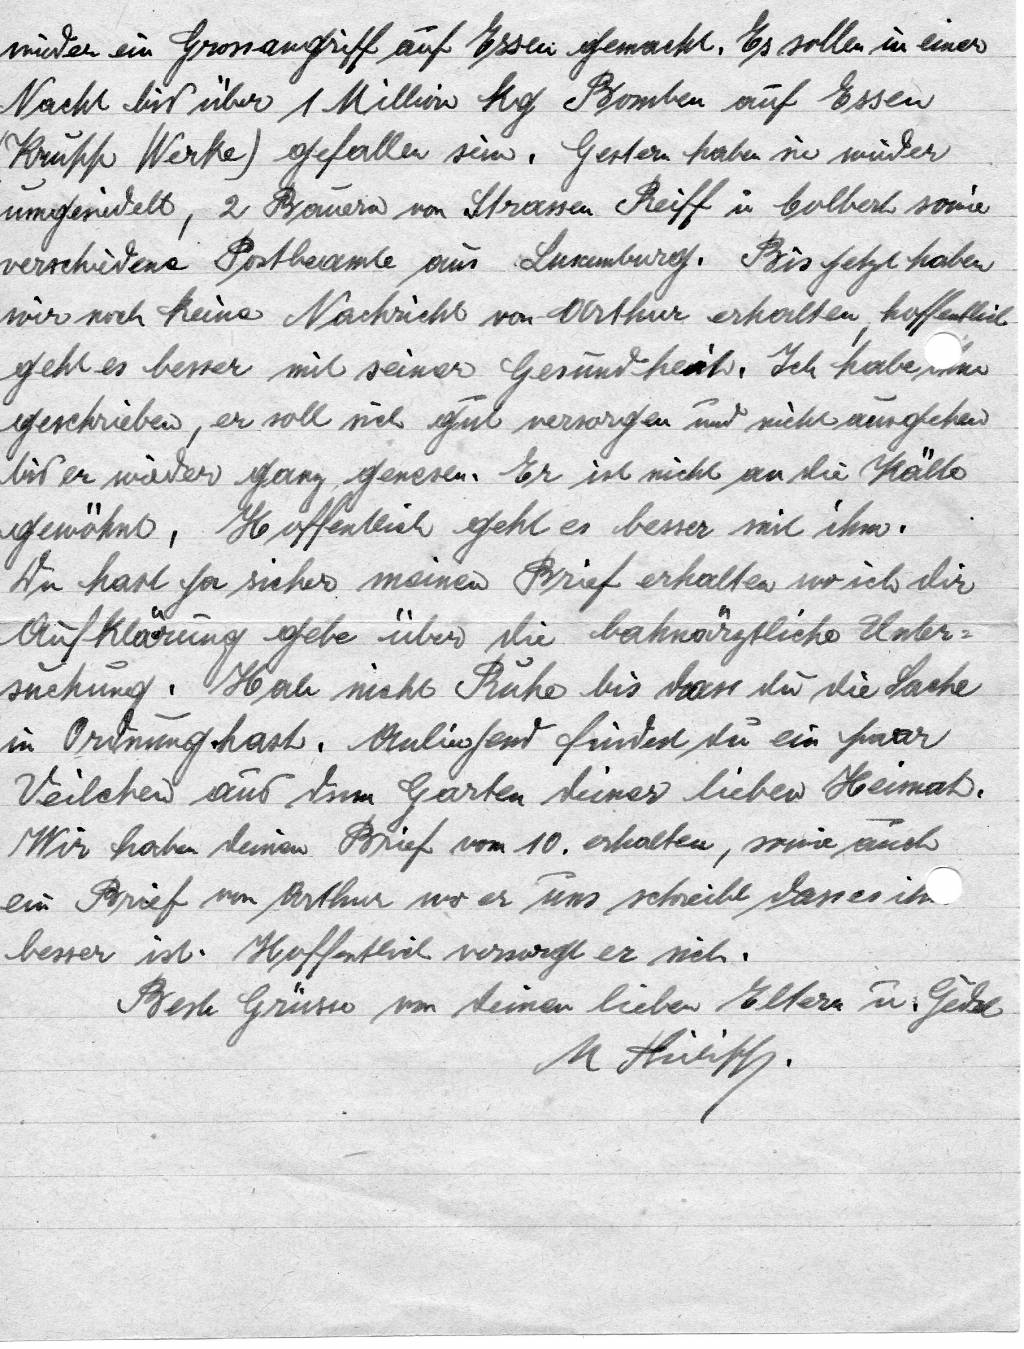 wieder ein Grossangriff auf Essen gemacht. Es sollen in einer
Nacht bis über 1 Million kg Bomben auf Essen
(Krupp Werke) gefallen sein. Gestern haben sie wieder
umgesiedelt, 2 Bauern von Strassen Reiff u Colbert sowie
verschidene Postbeamte aus Luxemburg. Bis jetzt haben
wir noch keine Nachricht von Arthur erhalten, hoffentlich
geht es besser mit seiner Gesundheit. Ich habe ihm
geschrieben, er soll sich gut versorgen und nicht ausgehen
bis er wieder ganz genesen. Er ist nicht an die Kälte
gewöhnt, Hoffentlich geht es besser mit ihm.
Du hast ja sicher meinen Brief erhalten wo ich dir
Aufklärung gebe über die bahnärztliche Unter=
suchung. Hab nicht Ruhe bis dass du die Sache
in Ordnung hast. Anliegend findest du ein paar
Veilchen aus dem Garten deiner lieben Heimat.
Wir haben deinen Brief vom 10. erhalten, sowie auch
ein Brief von Arthur wo er uns schreibt dass es ihm
besser ist. Hoffentlich versorgt er sich.
Beste Grüsse von deinen lieben Eltern u.
M